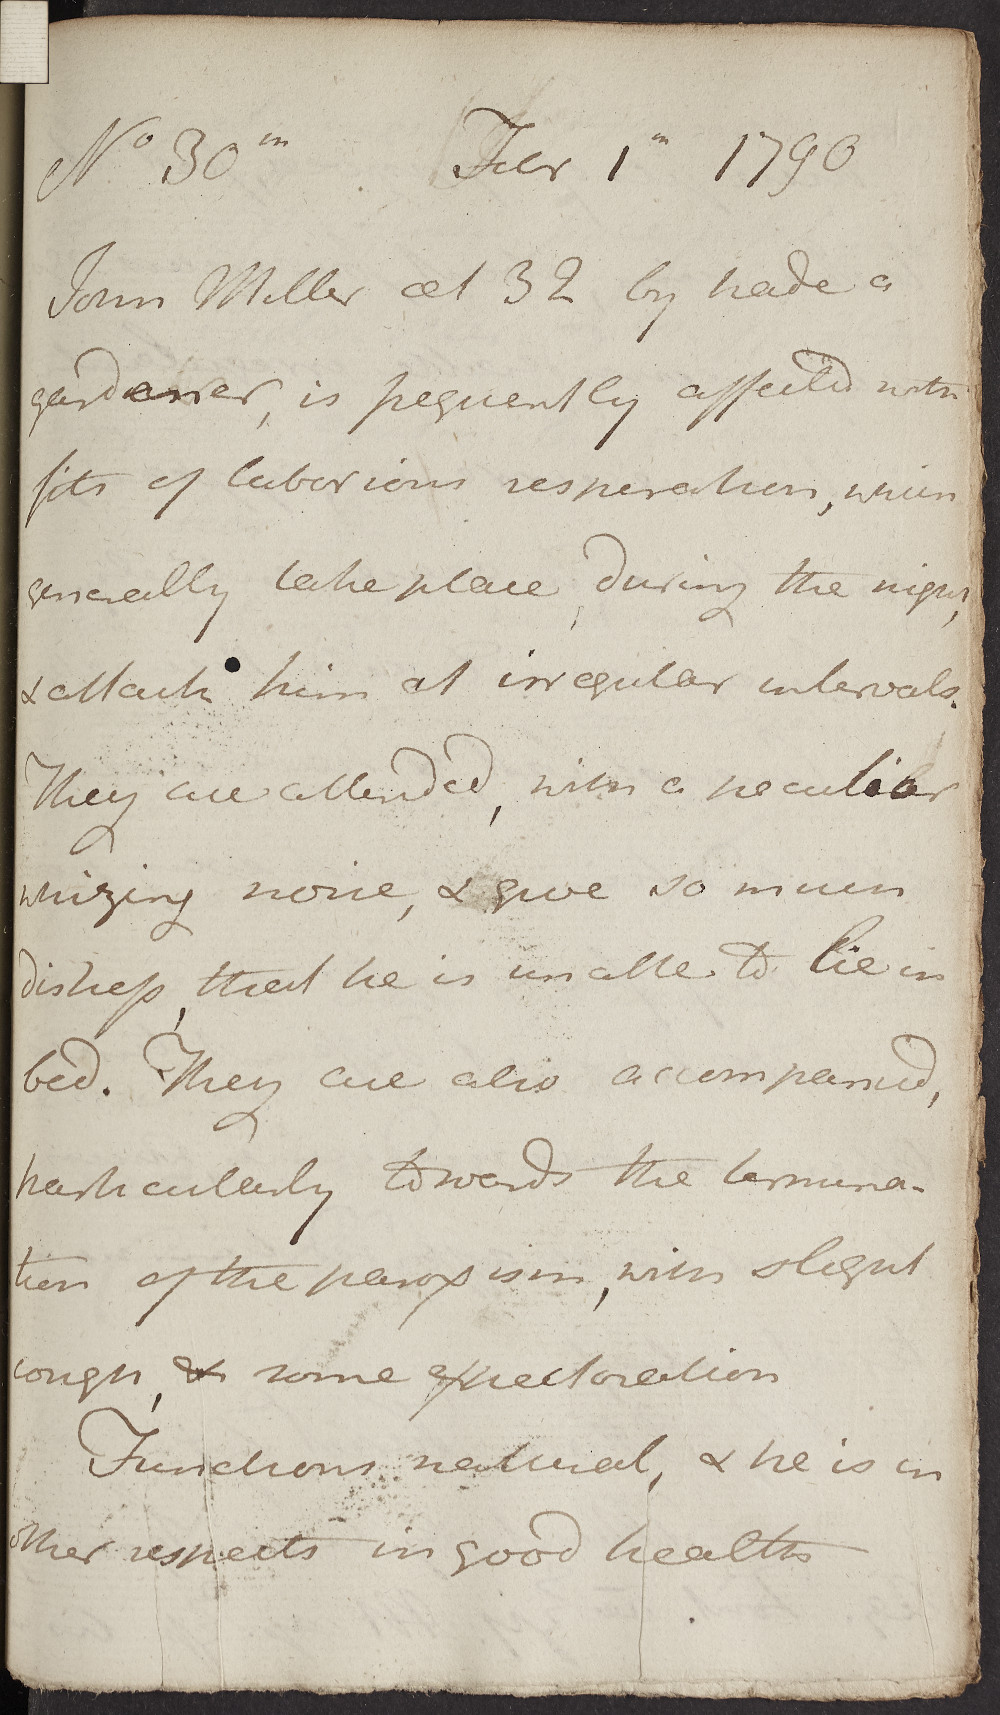 No 30m Febr 1m 1790
John Miller aet 32 by trade a
gardener, is frequently affected with
fits of laborious resperation, which
generally take place, during the night,
& attack him at irregular intervals.
They are attended, with a peculiar
whizing noise, & give so much
distress, that he is unable to lie in
bed. They are also accompanied,
particularly towards the termina-
tion of the paroxism, with slight
cough, & some expectoration
Functions natural, & he is in
other respects in good health